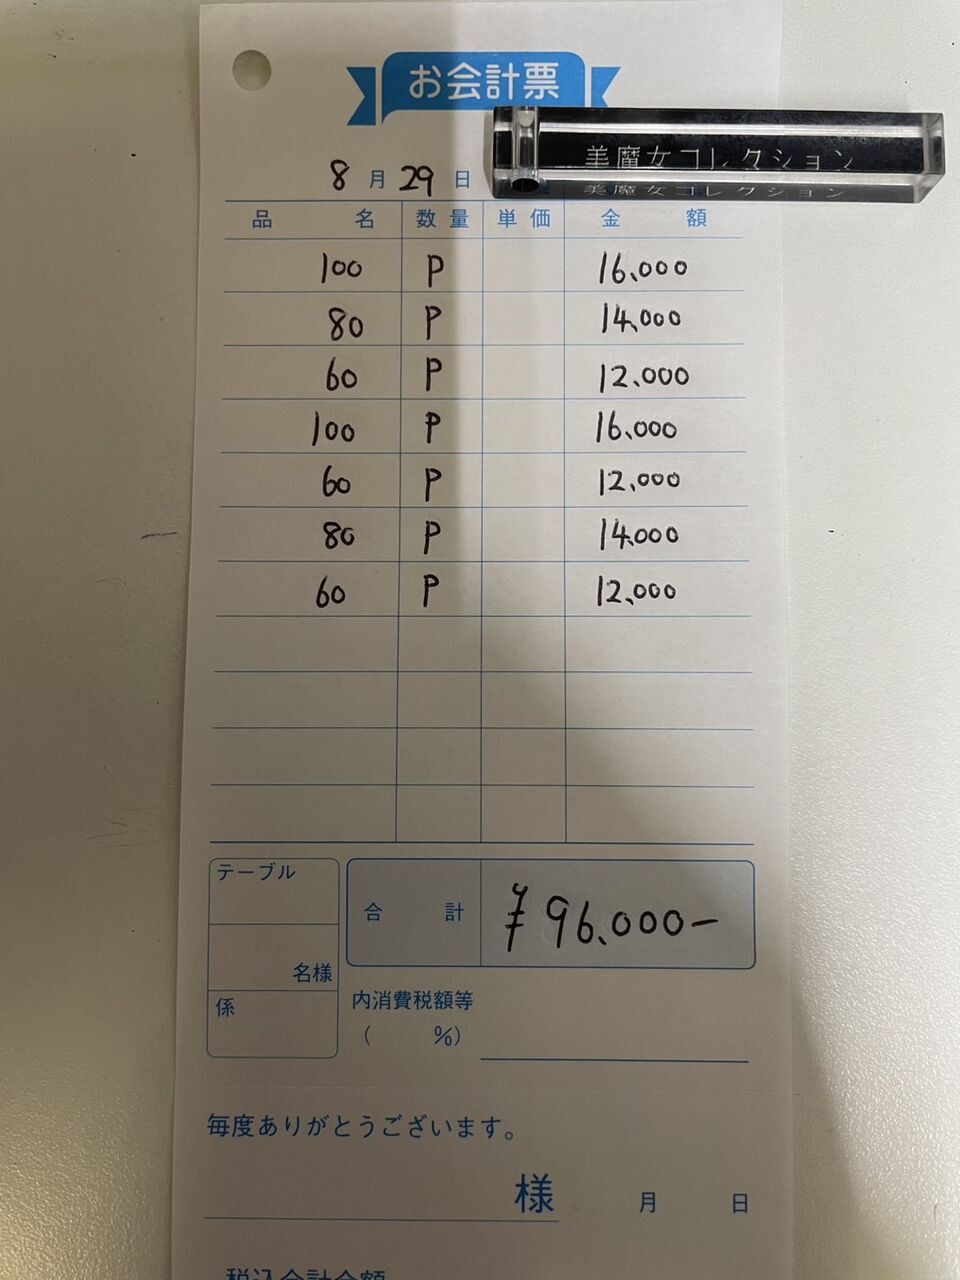 お会計票
美魔女コレクション
美魔女コレクション
8月29日
品名 数量 単価 金額
100 P 16,000
80 P 14,000
60 P 12,000
100 P 16,000
60 P 12,000
80 P 14,000
60 P 12,000
テーブル
合計 ¥96,000-
名様
係
内消費税額等
( %)
毎度ありがとうございます。
様 月 日
税込合計金額